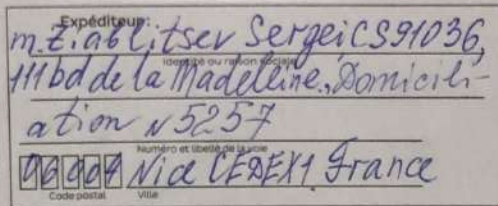 Expéditeur:
m. Ziablitsev Sergei, CS 91036,
Identité ou raison sociale
111 bd de la Madelleine, Domicili-
ation N 5257
Numéro et libellé de la voie
06004 Nice CEDEX1 France
Code postal Ville